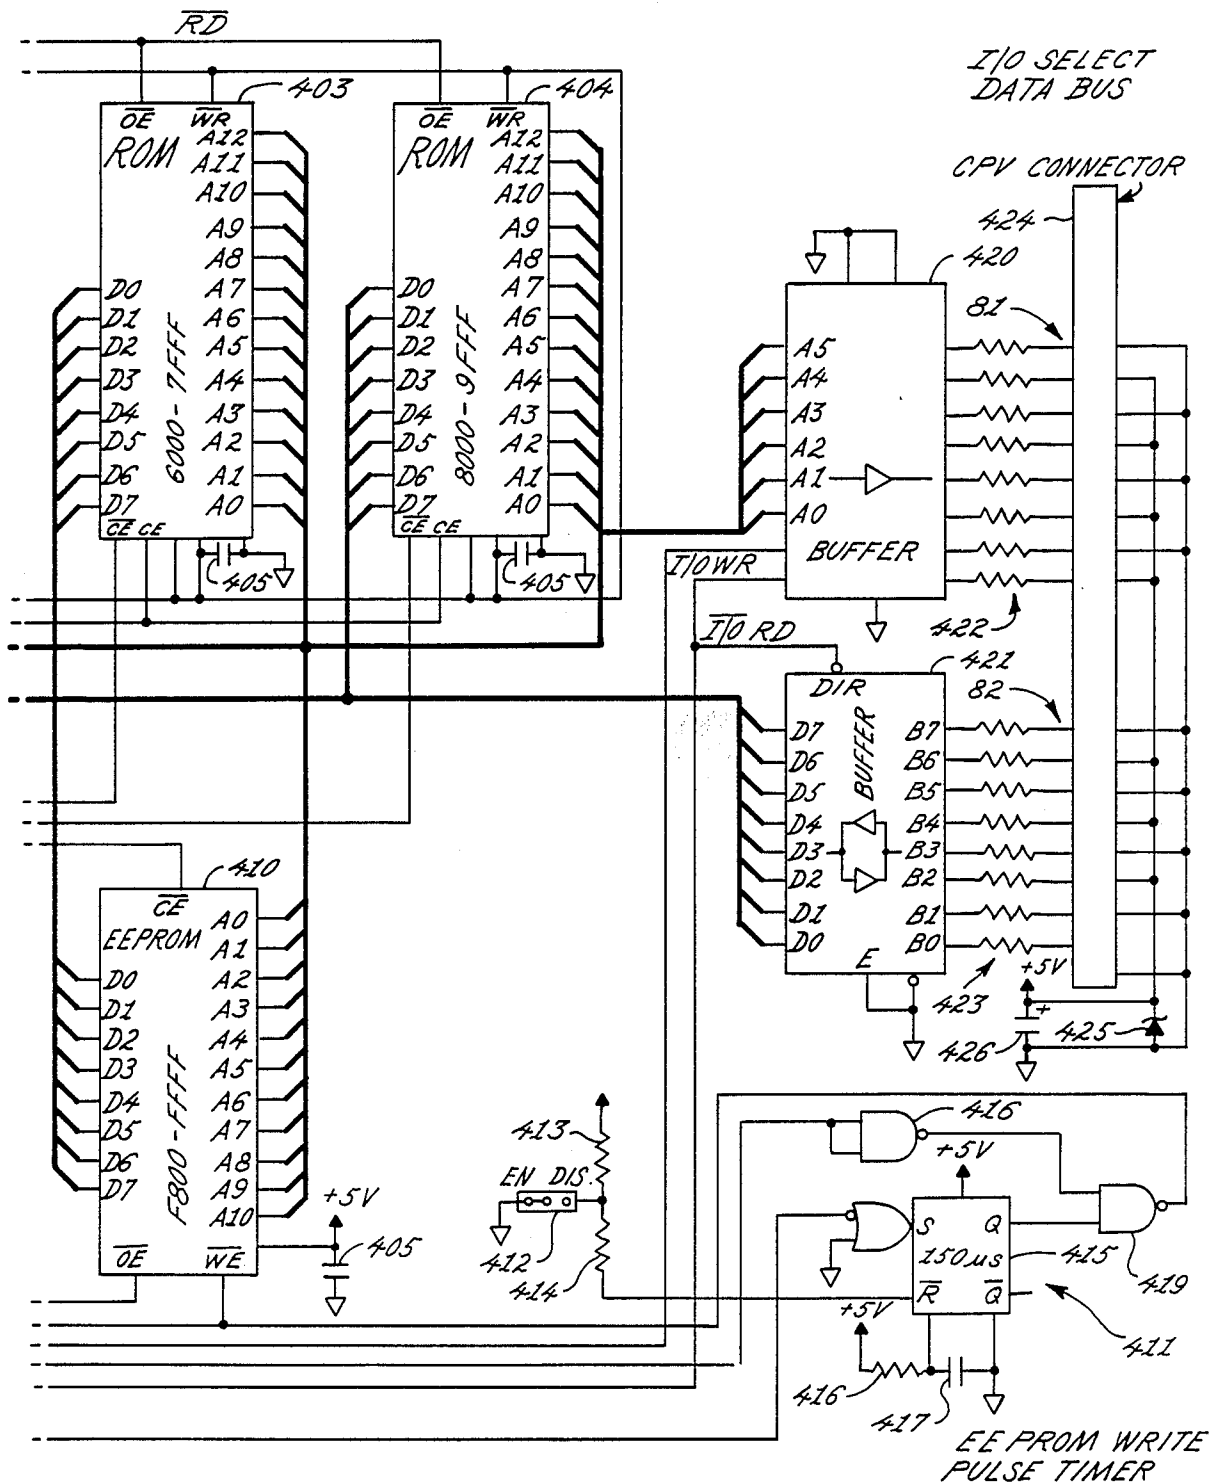 R̅D̅
I/O SELECT
DATA BUS
403
404
O̅E̅ W̅R̅
ROM
A12
A11
A10
A9
A8
A7
A6
A5
A4
A3
A2
A1
A0
D0
D1
D2
D3
D4
D5
D6
D7
6000-7FFF
C̅E̅ CE
405
O̅E̅ W̅R̅
ROM
A12
A11
A10
A9
A8
A7
A6
A5
A4
A3
A2
A1
A0
D0
D1
D2
D3
D4
D5
D6
D7
8000-9FFF
C̅E̅ CE
405
CPV CONNECTOR
424
420
81
A5
A4
A3
A2
A1
A0
BUFFER
I/O WR
422
I̅/̅O̅ RD
421
82
DIR
BUFFER
D7
D6
D5
D4
D3
D2
D1
D0
B7
B6
B5
B4
B3
B2
B1
B0
E
423
+5V
+
426
425
410
C̅E̅
EEPROM
A0
A1
A2
A3
A4
A5
A6
A7
A8
A9
A10
D0
D1
D2
D3
D4
D5
D6
D7
F800-FFFF
O̅E̅ W̅E̅
+5V
405
413
EN DIS.
412
414
416
+5V
S Q
150µs
R̅ Q̅
415
419
411
+5V
416
417
EE PROM WRITE
PULSE TIMER